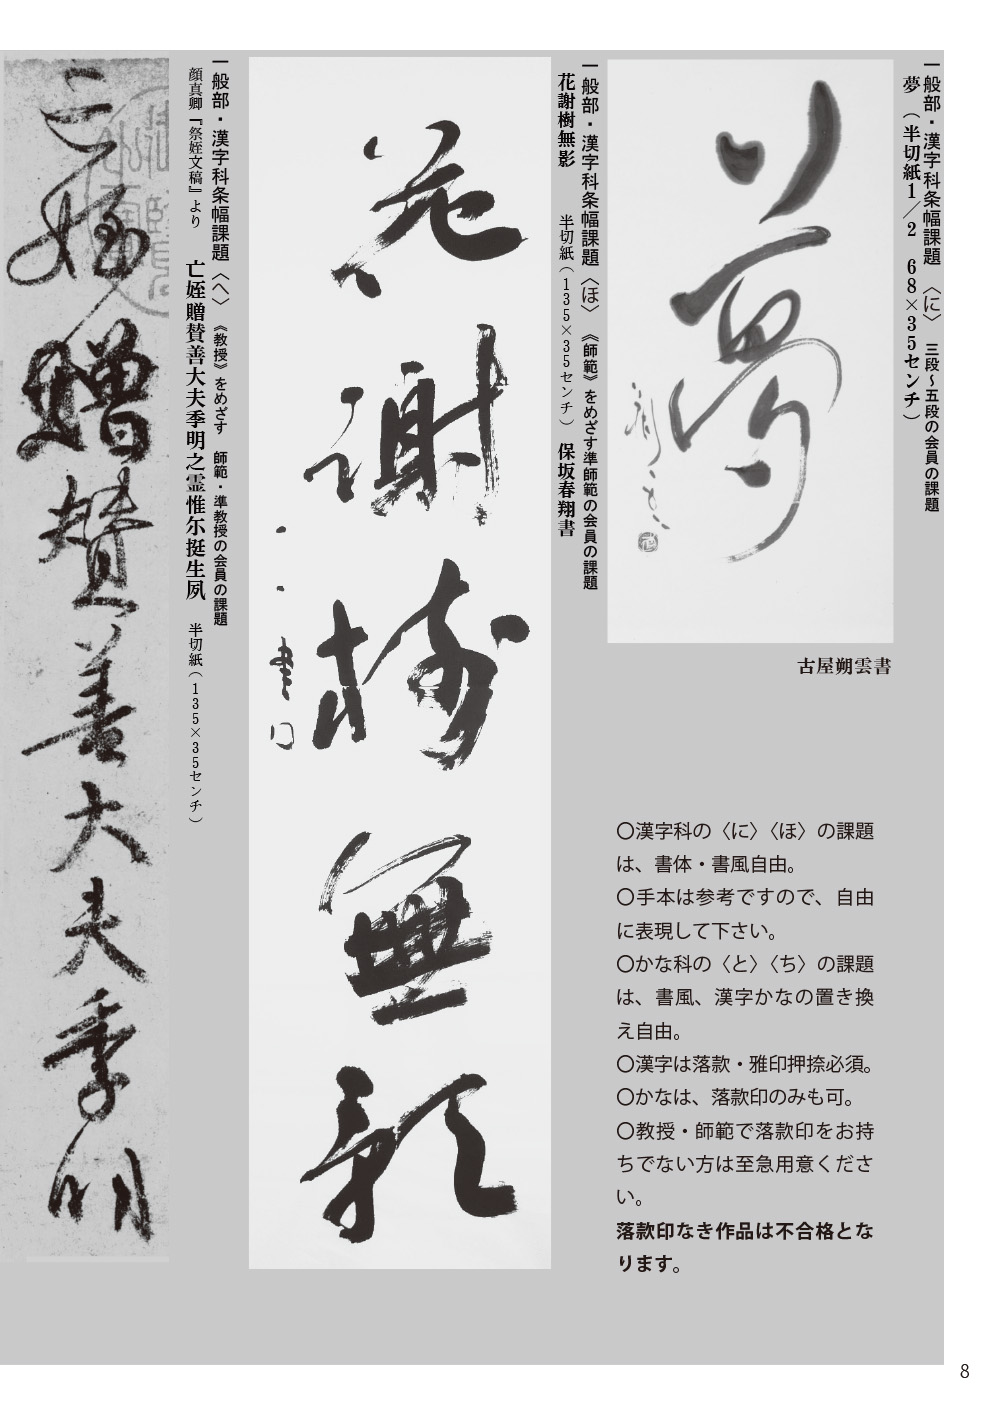 一般部・漢字科条幅課題〈に〉 三段～五段の会員の課題
夢（半切紙1／2 68×35センチ）
夢
古屋朔雲書
一般部・漢字科条幅課題〈ほ〉 《師範》をめざす準師範の会員の課題
花謝樹無影 半切紙（135×35センチ） 保坂春翔書
花謝樹無影
一般部・漢字科条幅課題〈へ〉 《教授》をめざす 師範・準教授の会員の課題
顔真卿『祭姪文稿』より 亡姪贈賛善大夫季明之霊惟尓挺生夙 半切紙（135×35センチ）
亡姪贈賛善大夫季明
〇漢字科の〈に〉〈ほ〉の課題
は、書体・書風自由。
〇手本は参考ですので、自由
に表現して下さい。
〇かな科の〈と〉〈ち〉の課題
は、書風、漢字かなの置き換
え自由。
〇漢字は落款・雅印押捺必須。
〇かなは、落款印のみも可。
〇教授・師範で落款印をお持
ちでない方は至急用意くださ
い。
落款印なき作品は不合格とな
ります。
8